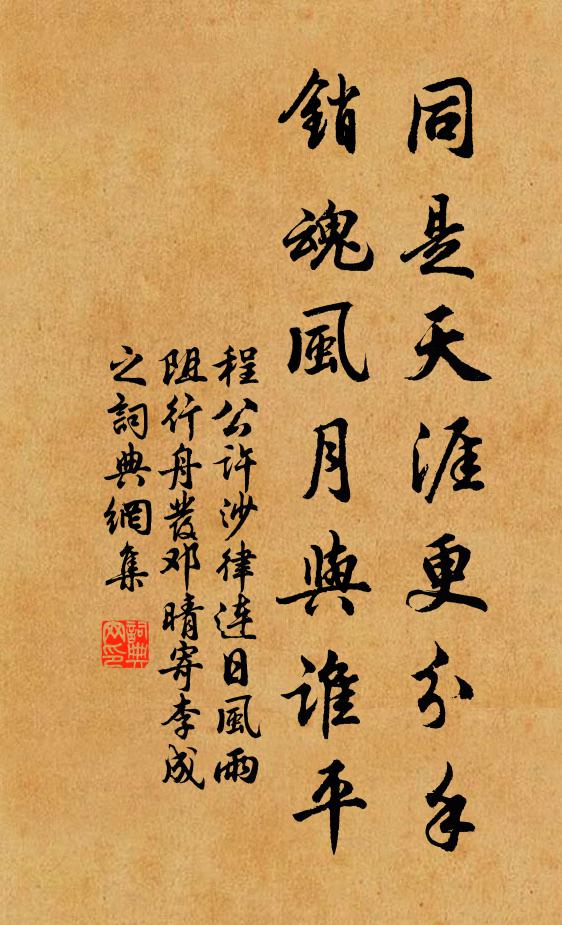 同是天涯更分手
銷魂風月與誰平
程公许沙律連日風雨
阻行舟發邓晴寄李成
之詞典網集
詞典网印